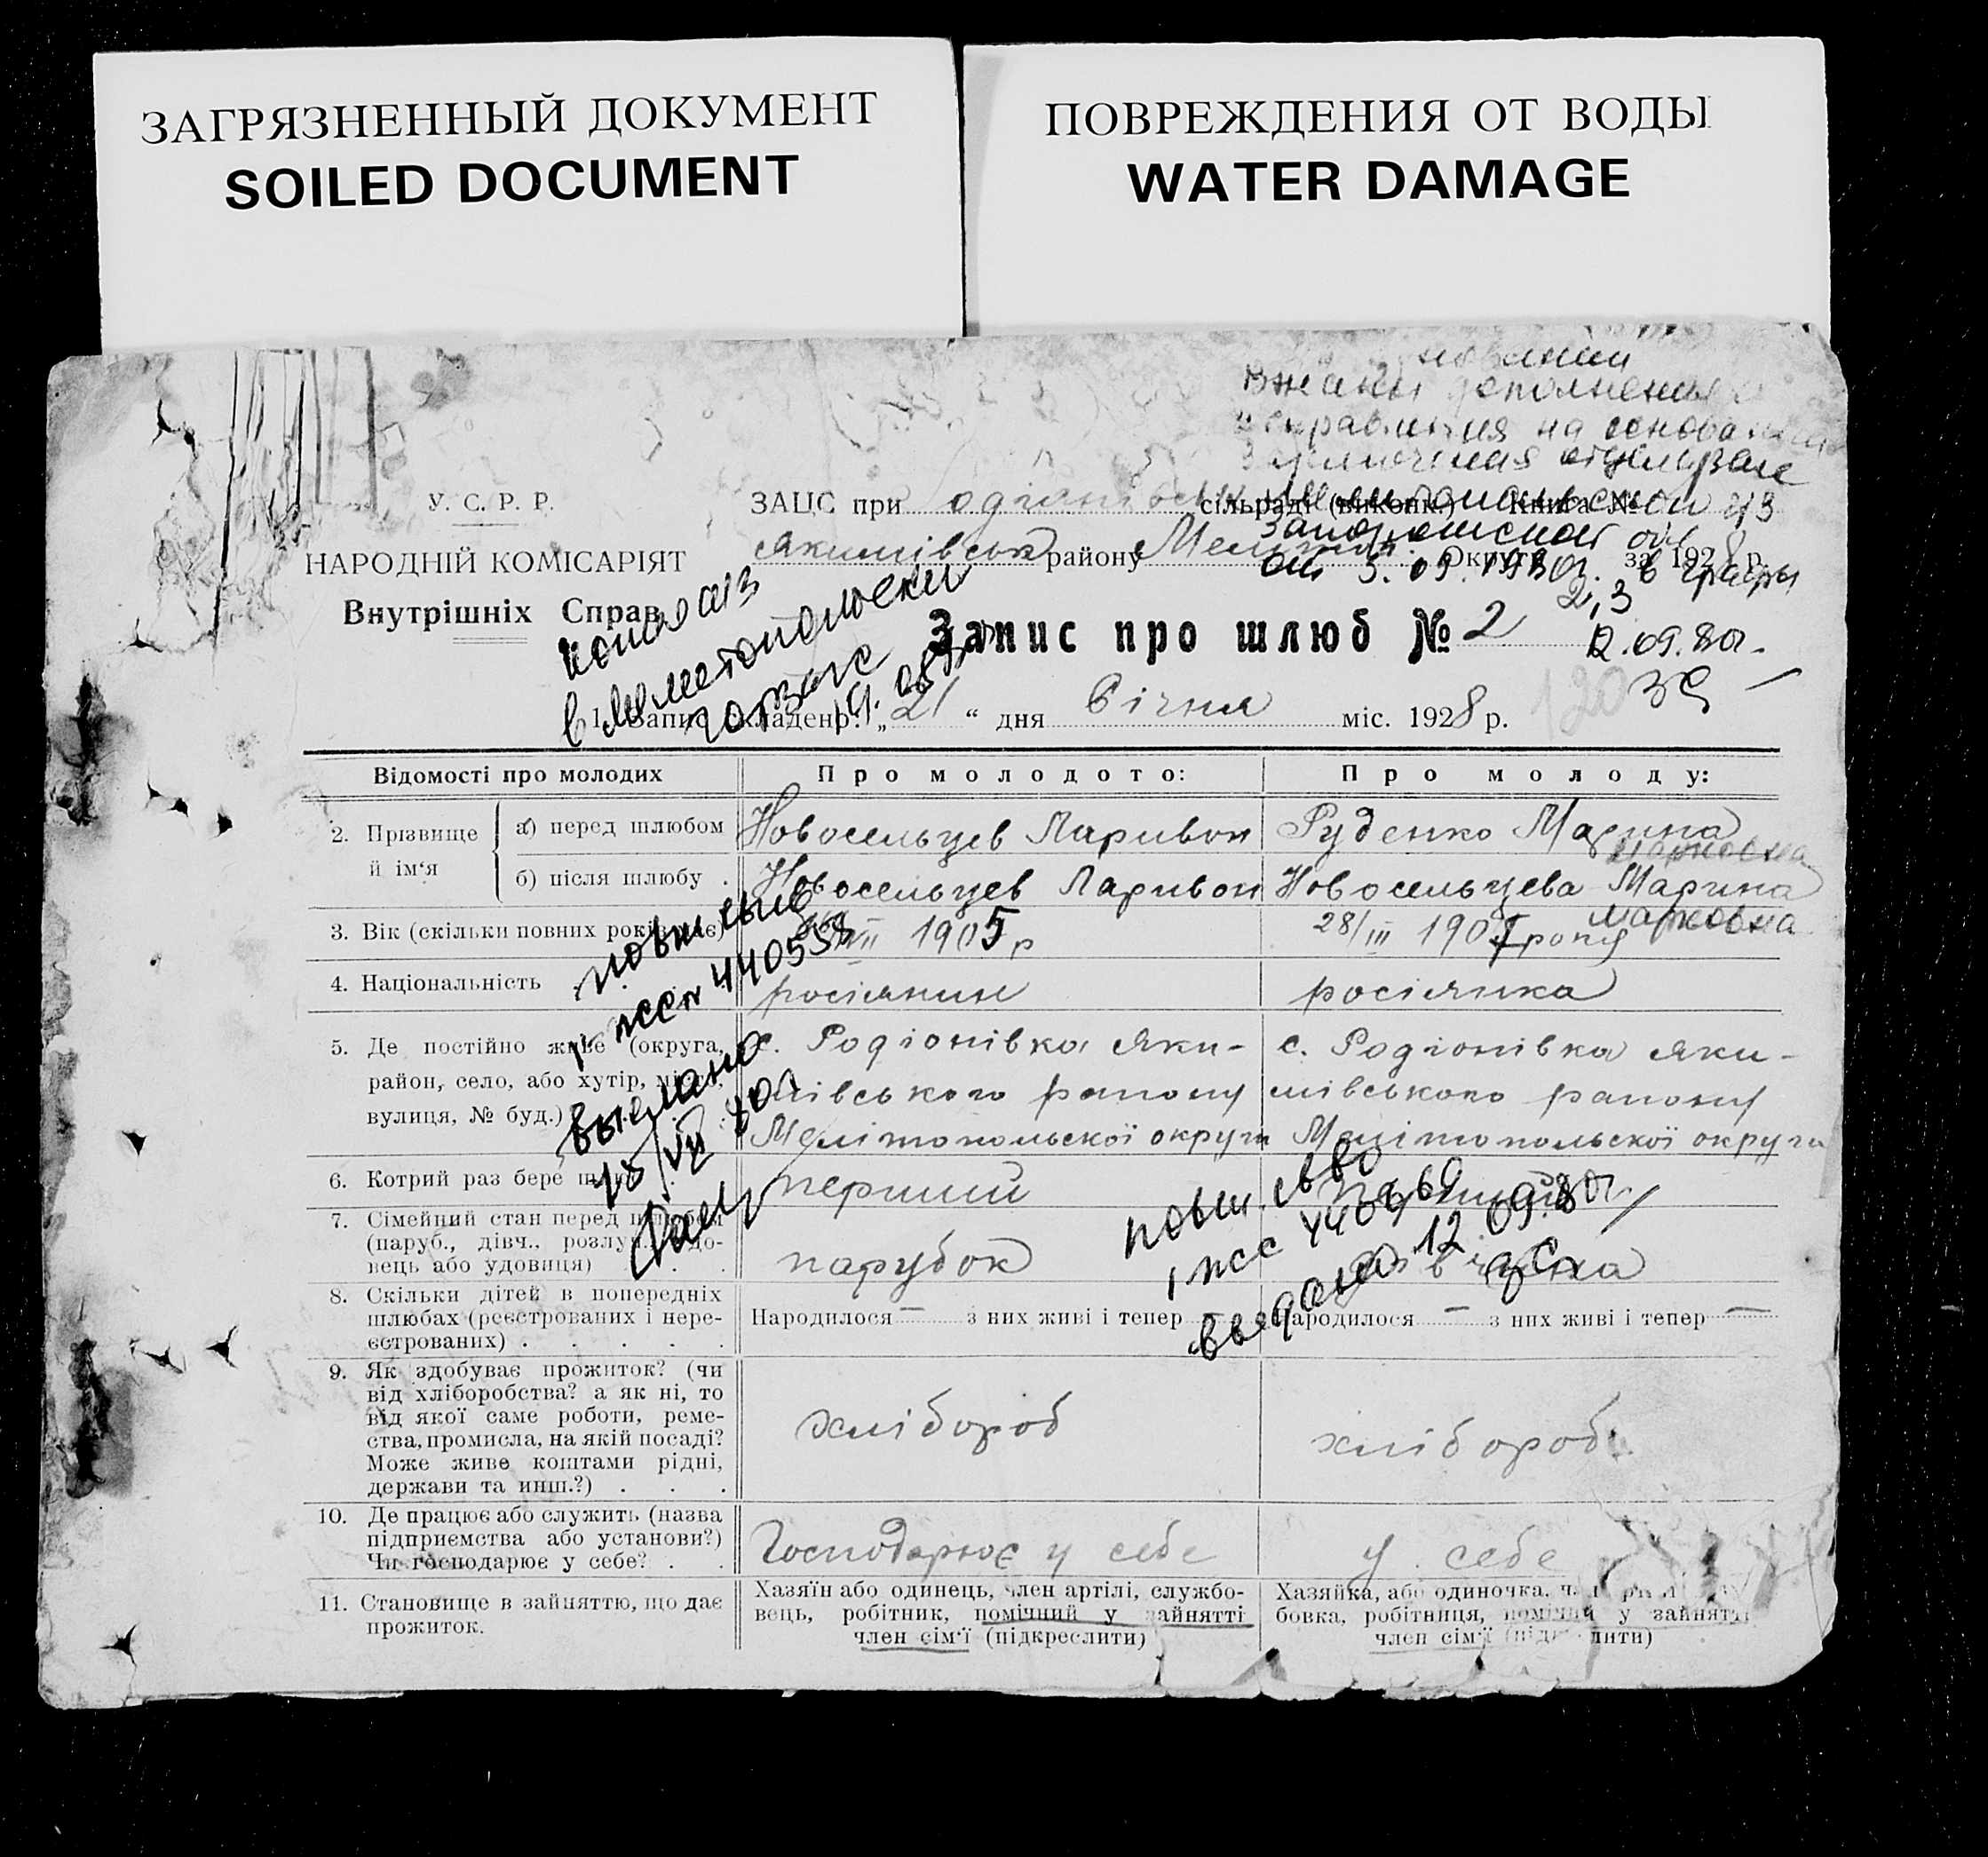 ЗАГРЯЗНЕННЫЙ ДОКУМЕНТ
SOILED DOCUMENT
ПОВРЕЖДЕНИЯ ОТ ВОДЫ
WATER DAMAGE
дополнения
исправления на основании
заключения
Запорожской обл
от 5.09.1980г. в графы
2,3
12.09.80г.
У. С. Р. Р.
НАРОДНІЙ КОМІСАРІЯТ
Внутрішніх Справ
ЗАЦС при сільраді (виконк.) Книга №
Якимівськ району Мелітоп. Округи за 1928 р.
Запис про шлюб № 2
1. Запис складено: „21“ дня Січня міс. 1928 р.
120
копия
в Мелитопольский
горзагс
Відомості про молодих
Про молодого:
Про молоду:
2. Прізвище й ім‘я
а) перед шлюбом Новосельцев Ларивон Руденко Марина
Марковна
б) після шлюбу . Новосельцев Ларивон Новосельцева Марина
Марковна
3. Вік (скільки повних років має) 1905 р 28/III 190 року
4. Національність росіянин росіянка
5. Де постійно живе (округа,
район, село, або хутір, місто,
вулиця, № буд.)
с. Родіонівка Яки-
мівського району
Мелітопольскої округи
с. Родіонівка Яки-
мівського району
Мелітопольскої округи
повт. св-во
I ЖС № 440553
выдано
повт. св-во
I ЖС
выдано 12.09.80г.
6. Котрий раз бере шлюб перший
7. Сімейний стан перед шлюбом
(паруб., дівч., розлуч., вдо-
вець або удовиця) . . .
парубок дівчина
8. Скільки дітей в попередніх
шлюбах (реєстрованих і нере-
єстрованих) . . . . .
Народилося — з них живі і тепер
Народилося — з них живі і тепер —
9. Як здобуває прожиток? (чи
від хліборобства? а як ні, то
від якої саме роботи, реме-
ства, промисла, на якій посаді?
Може живе коштами рідні,
держави та инш.?) . . .
хлібороб хлібороб
10. Де працює або служить (назва
підприємства або установи?)
Чи господарює у себе? . .
Господарює у себе у себе
11. Становище в зайняттю, що дає
прожиток.
Хазяїн або одинець, член артілі, службо-
вець, робітник, помічний у зайнятті
член сім‘ї (підкреслити)
Хазяйка, або одиночка,
бовка, робітниця, помічна у зайнятті
член сім‘ї (підкреслити)